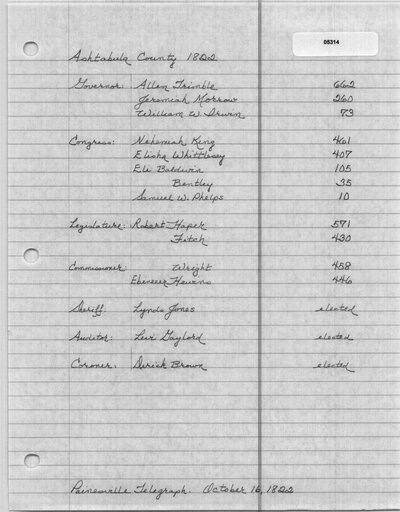 05314
Ashtabula County 1822
Governor: Allen Trimble 662
Jeremiah Morrow 260
William W. Irwin 73
Congress: Nehemiah King 461
Elisha Whittlesey 407
Eli Baldwin 105
Bentley 35
Samuel W. Phelps 10
Legislature: Robert Haper 571
Fitch 430
Commissioner Wright 458
Ebenezer Hewens 446
Sheriff: Lynds Jones elected
Auditor: Levi Gaylord elected
Coroner: Derick Brown elected
Painesville Telegraph. October 16, 1822